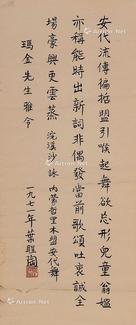 安代流傳徧哲盟引喉起舞欲忘形兒童翁媼
亦稱能時出新詞非偶發當前歌頌吐衷誠全
場豪興更雲蒸
浣溪沙詠內蒙哲里木盟安代舞
瑪金先生雅令
一九七一年葉聖陶